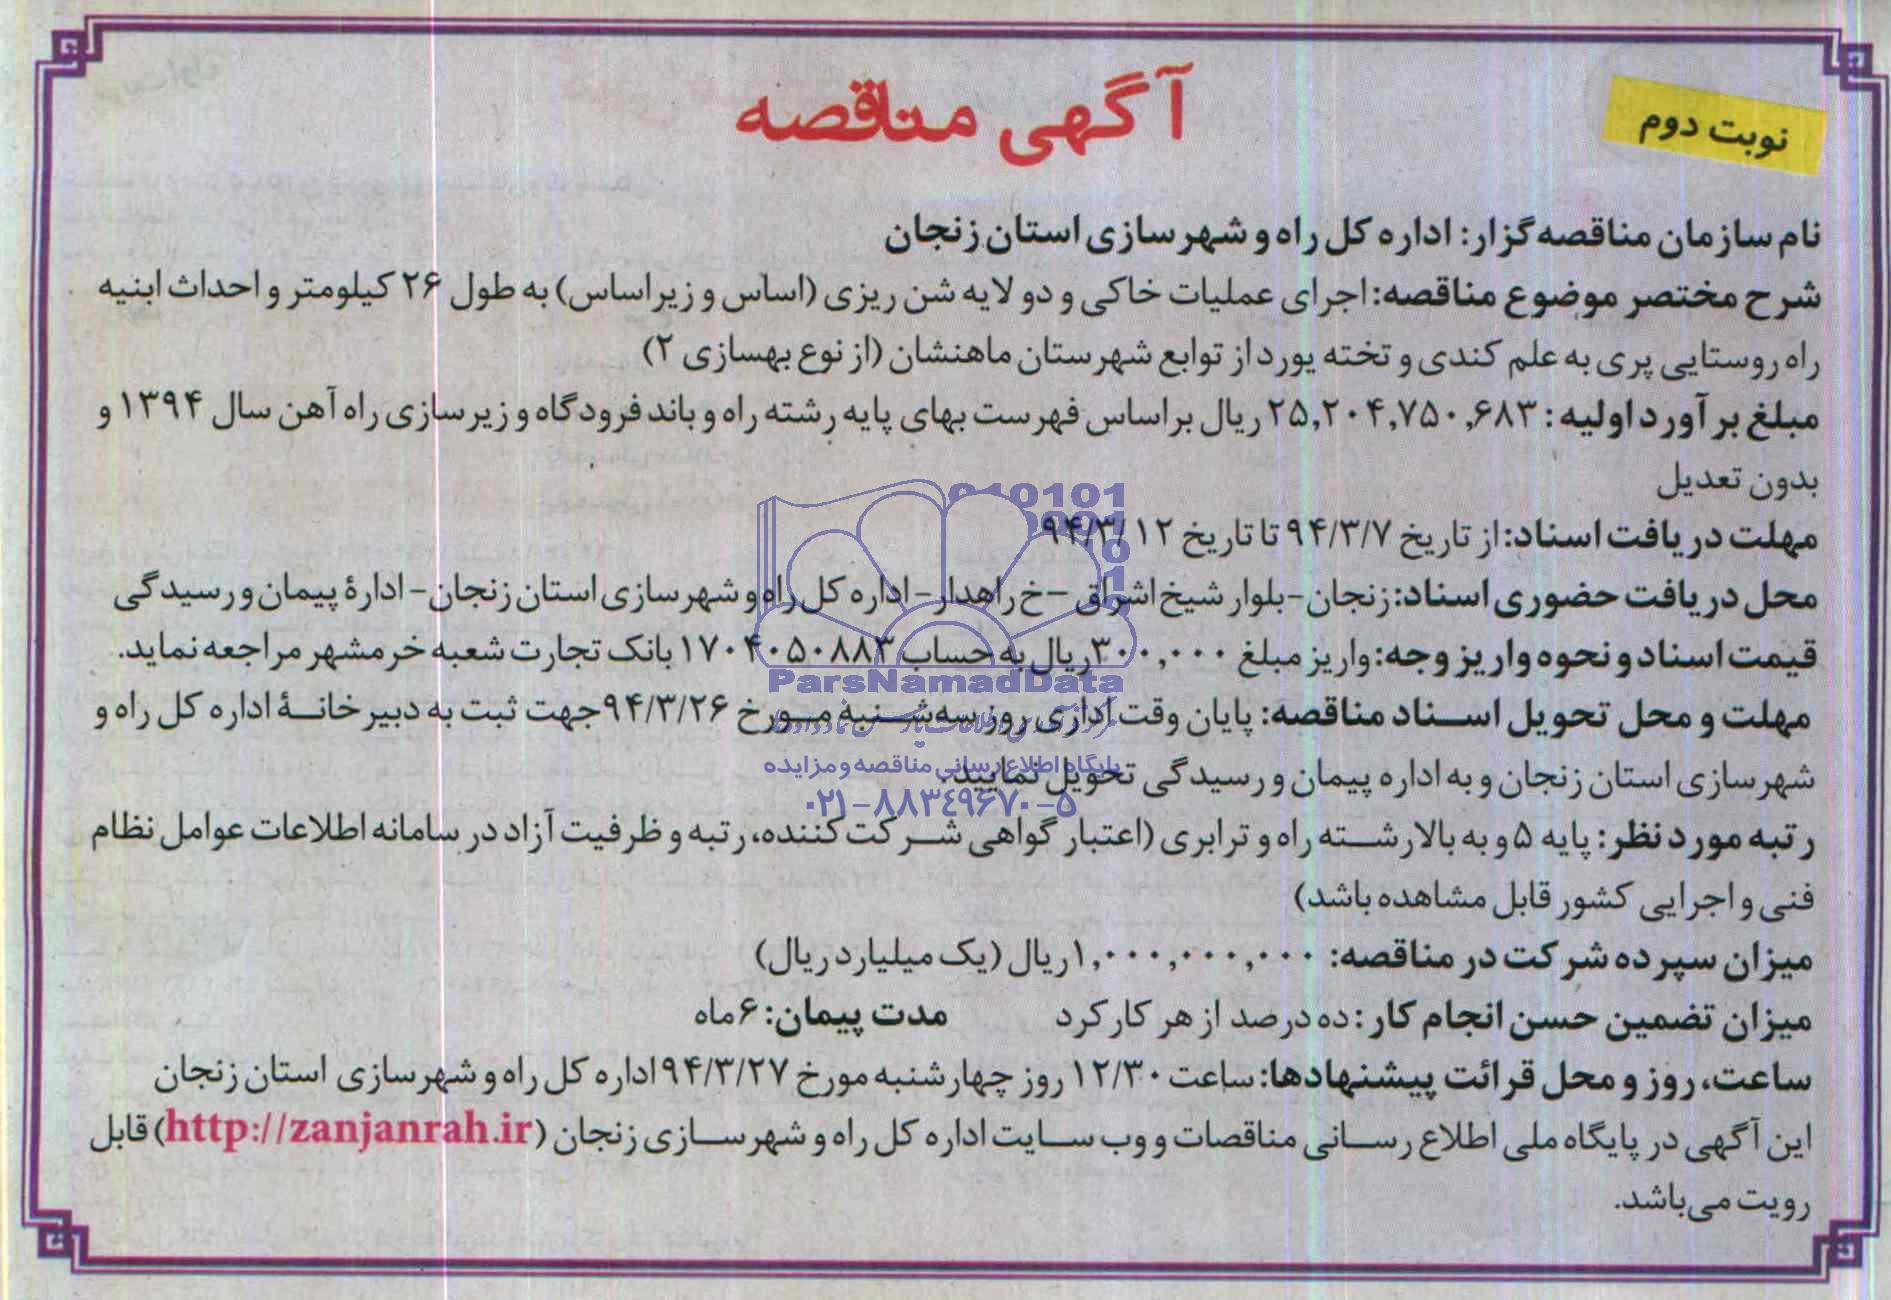 نوبت دوم
آگهی مناقصه
نام سازمان مناقصه‌گزار: اداره کل راه و شهرسازی استان زنجان
شرح مختصر موضوع مناقصه: اجرای عملیات خاکی و دو لایه شن ریزی (اساس و زیراساس) به طول ۲۶ کیلومتر و احداث ابنیه
راه روستایی پری به علم کندی و تخته یورد از توابع شهرستان ماهنشان (از نوع بهسازی ۲)
مبلغ برآورد اولیه: ۲۵,۲۰۴,۷۵۰,۶۸۳ ریال براساس فهرست بهای پایه رشته راه و باند فرودگاه و زیرسازی راه آهن سال ۱۳۹۴ و
بدون تعدیل
010101
مهلت دریافت اسناد: از تاریخ ۹۴/۳/۷ تا تاریخ ۹۴/۳/۱۲
محل دریافت حضوری اسناد: زنجان-بلوار شیخ اشراق - خ راهدار- اداره کل راه و شهرسازی استان زنجان- ادارهٔ پیمان و رسیدگی
قیمت اسناد و نحوه واریز وجه: واریز مبلغ ۳۰۰,۰۰۰ ریال به حساب ۱۷۰۴۰۵۰۸۸۳ بانک تجارت شعبه خرمشهر مراجعه نماید.
ParsNamadData
مهلت و محل تحویل اسناد مناقصه: پایان وقت اداری روز سه‌شنبه مورخ ۹۴/۳/۲۶ جهت ثبت به دبیرخانهٔ اداره کل راه و
شهرسازی استان زنجان و به اداره پیمان و رسیدگی تحویل نمایید.
پایگاه اطلاع رسانی مناقصه و مزایده
۰۲۱-۸۸۳۴۹۶۷۰-۵
رتبه مورد نظر: پایه ۵ و به بالا رشته راه و ترابری (اعتبار گواهی شرکت کننده، رتبه و ظرفیت آزاد در سامانه اطلاعات عوامل نظام
فنی و اجرایی کشور قابل مشاهده باشد)
میزان سپرده شرکت در مناقصه: ۱,۰۰۰,۰۰۰,۰۰۰ ریال (یک میلیارد ریال)
میزان تضمین حسن انجام کار: ده درصد از هر کارکرد مدت پیمان: ۶ ماه
ساعت، روز و محل قرائت پیشنهادها: ساعت ۱۲/۳۰ روز چهارشنبه مورخ ۹۴/۳/۲۷ اداره کل راه و شهرسازی استان زنجان
این آگهی در پایگاه ملی اطلاع رسانی مناقصات و وب سایت اداره کل راه و شهرسازی زنجان (http://zanjanrah.ir) قابل
رویت می‌باشد.